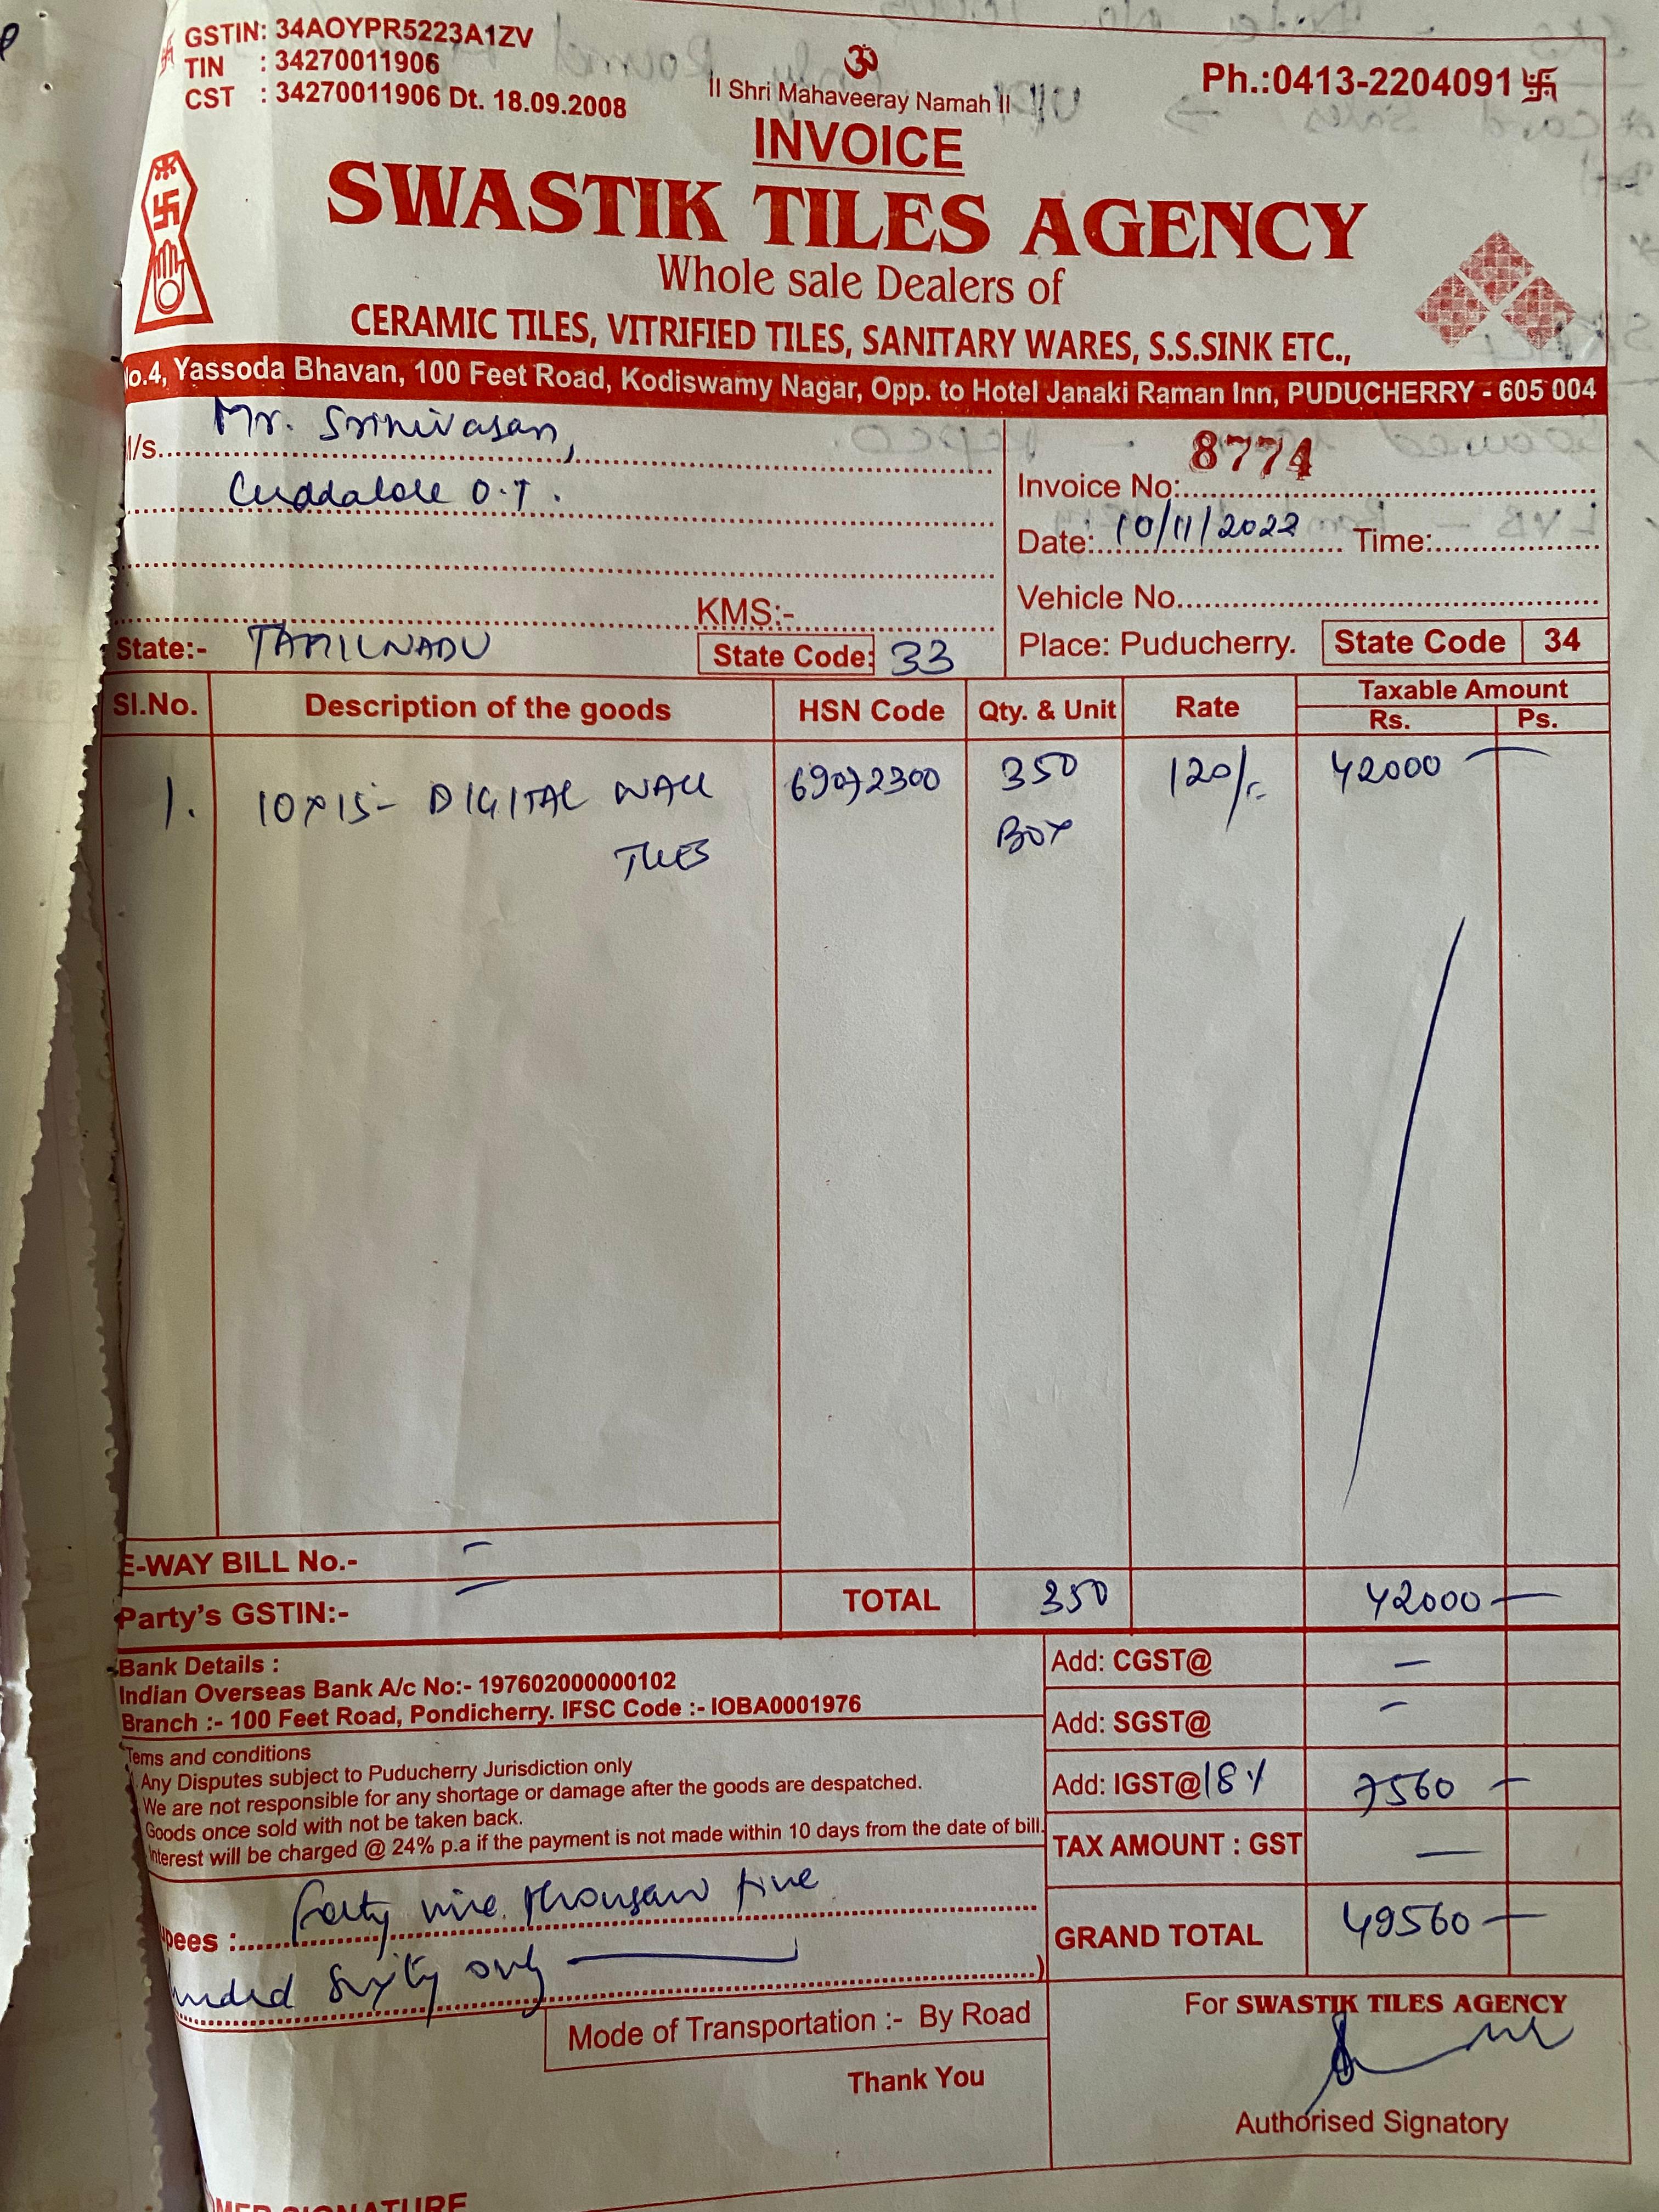 GSTIN: 34AOYPR5223A1ZV
TIN : 34270011906
CST : 34270011906 Dt. 18.09.2008
ॐ
II Shri Mahaveeray Namah II
Ph.:0413-2204091 卐
INVOICE
SWASTIK TILES AGENCY
Whole sale Dealers of
CERAMIC TILES, VITRIFIED TILES, SANITARY WARES, S.S.SINK ETC.,
No.4, Yassoda Bhavan, 100 Feet Road, Kodiswamy Nagar, Opp. to Hotel Janaki Raman Inn, PUDUCHERRY - 605 004
M/s. Mr. Srinivasan,
Cuddalore O.T.
KMS:-
State:- TAMILNADU State Code: 33
Invoice No: 8774
Date: 10/11/2022 Time:
Vehicle No.
Place: Puducherry. State Code 34
Sl.No. Description of the goods HSN Code Qty. & Unit Rate Taxable Amount
Rs. Ps.
1. 10x15- DIGITAL WALL 69072300 350 120/- 42000 —
TILES BOX
E-WAY BILL No.- —
Party's GSTIN:- — TOTAL 350 42000 —
Bank Details :
Indian Overseas Bank A/c No:- 197602000000102
Branch :- 100 Feet Road, Pondicherry. IFSC Code :- IOBA0001976
Tems and conditions
Any Disputes subject to Puducherry Jurisdiction only
We are not responsible for any shortage or damage after the goods are despatched.
Goods once sold with not be taken back.
Interest will be charged @ 24% p.a if the payment is not made within 10 days from the date of bill.
Add: CGST@ —
Add: SGST@ —
Add: IGST@ 18% 7560 —
TAX AMOUNT : GST —
GRAND TOTAL 49560 —
upees : Forty nine thousand five
hundred Sixty only
Mode of Transportation :- By Road
Thank You
For SWASTIK TILES AGENCY
Authorised Signatory
OMER SIGNATURE